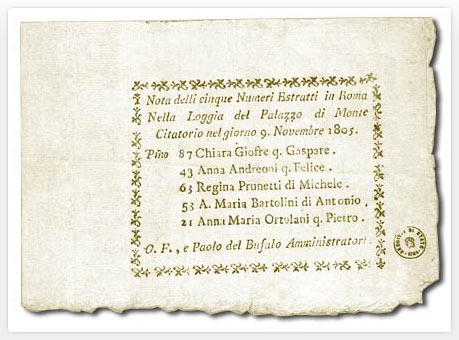 Nota delli cinque Numeri Estratti in Roma
Nella Loggia del Palazzo di Monte
Citatorio nel giorno 9. Novembre 1805.
Pino 87 Chiara Giofre q. Gaspare.
43 Anna Andreoni q. Felice.
63 Regina Prunetti di Michele.
53 A. Maria Bartolini di Antonio.
21 Anna Maria Ortolani q. Pietro.
O. F., e Paolo del Bufalo Amministratori.